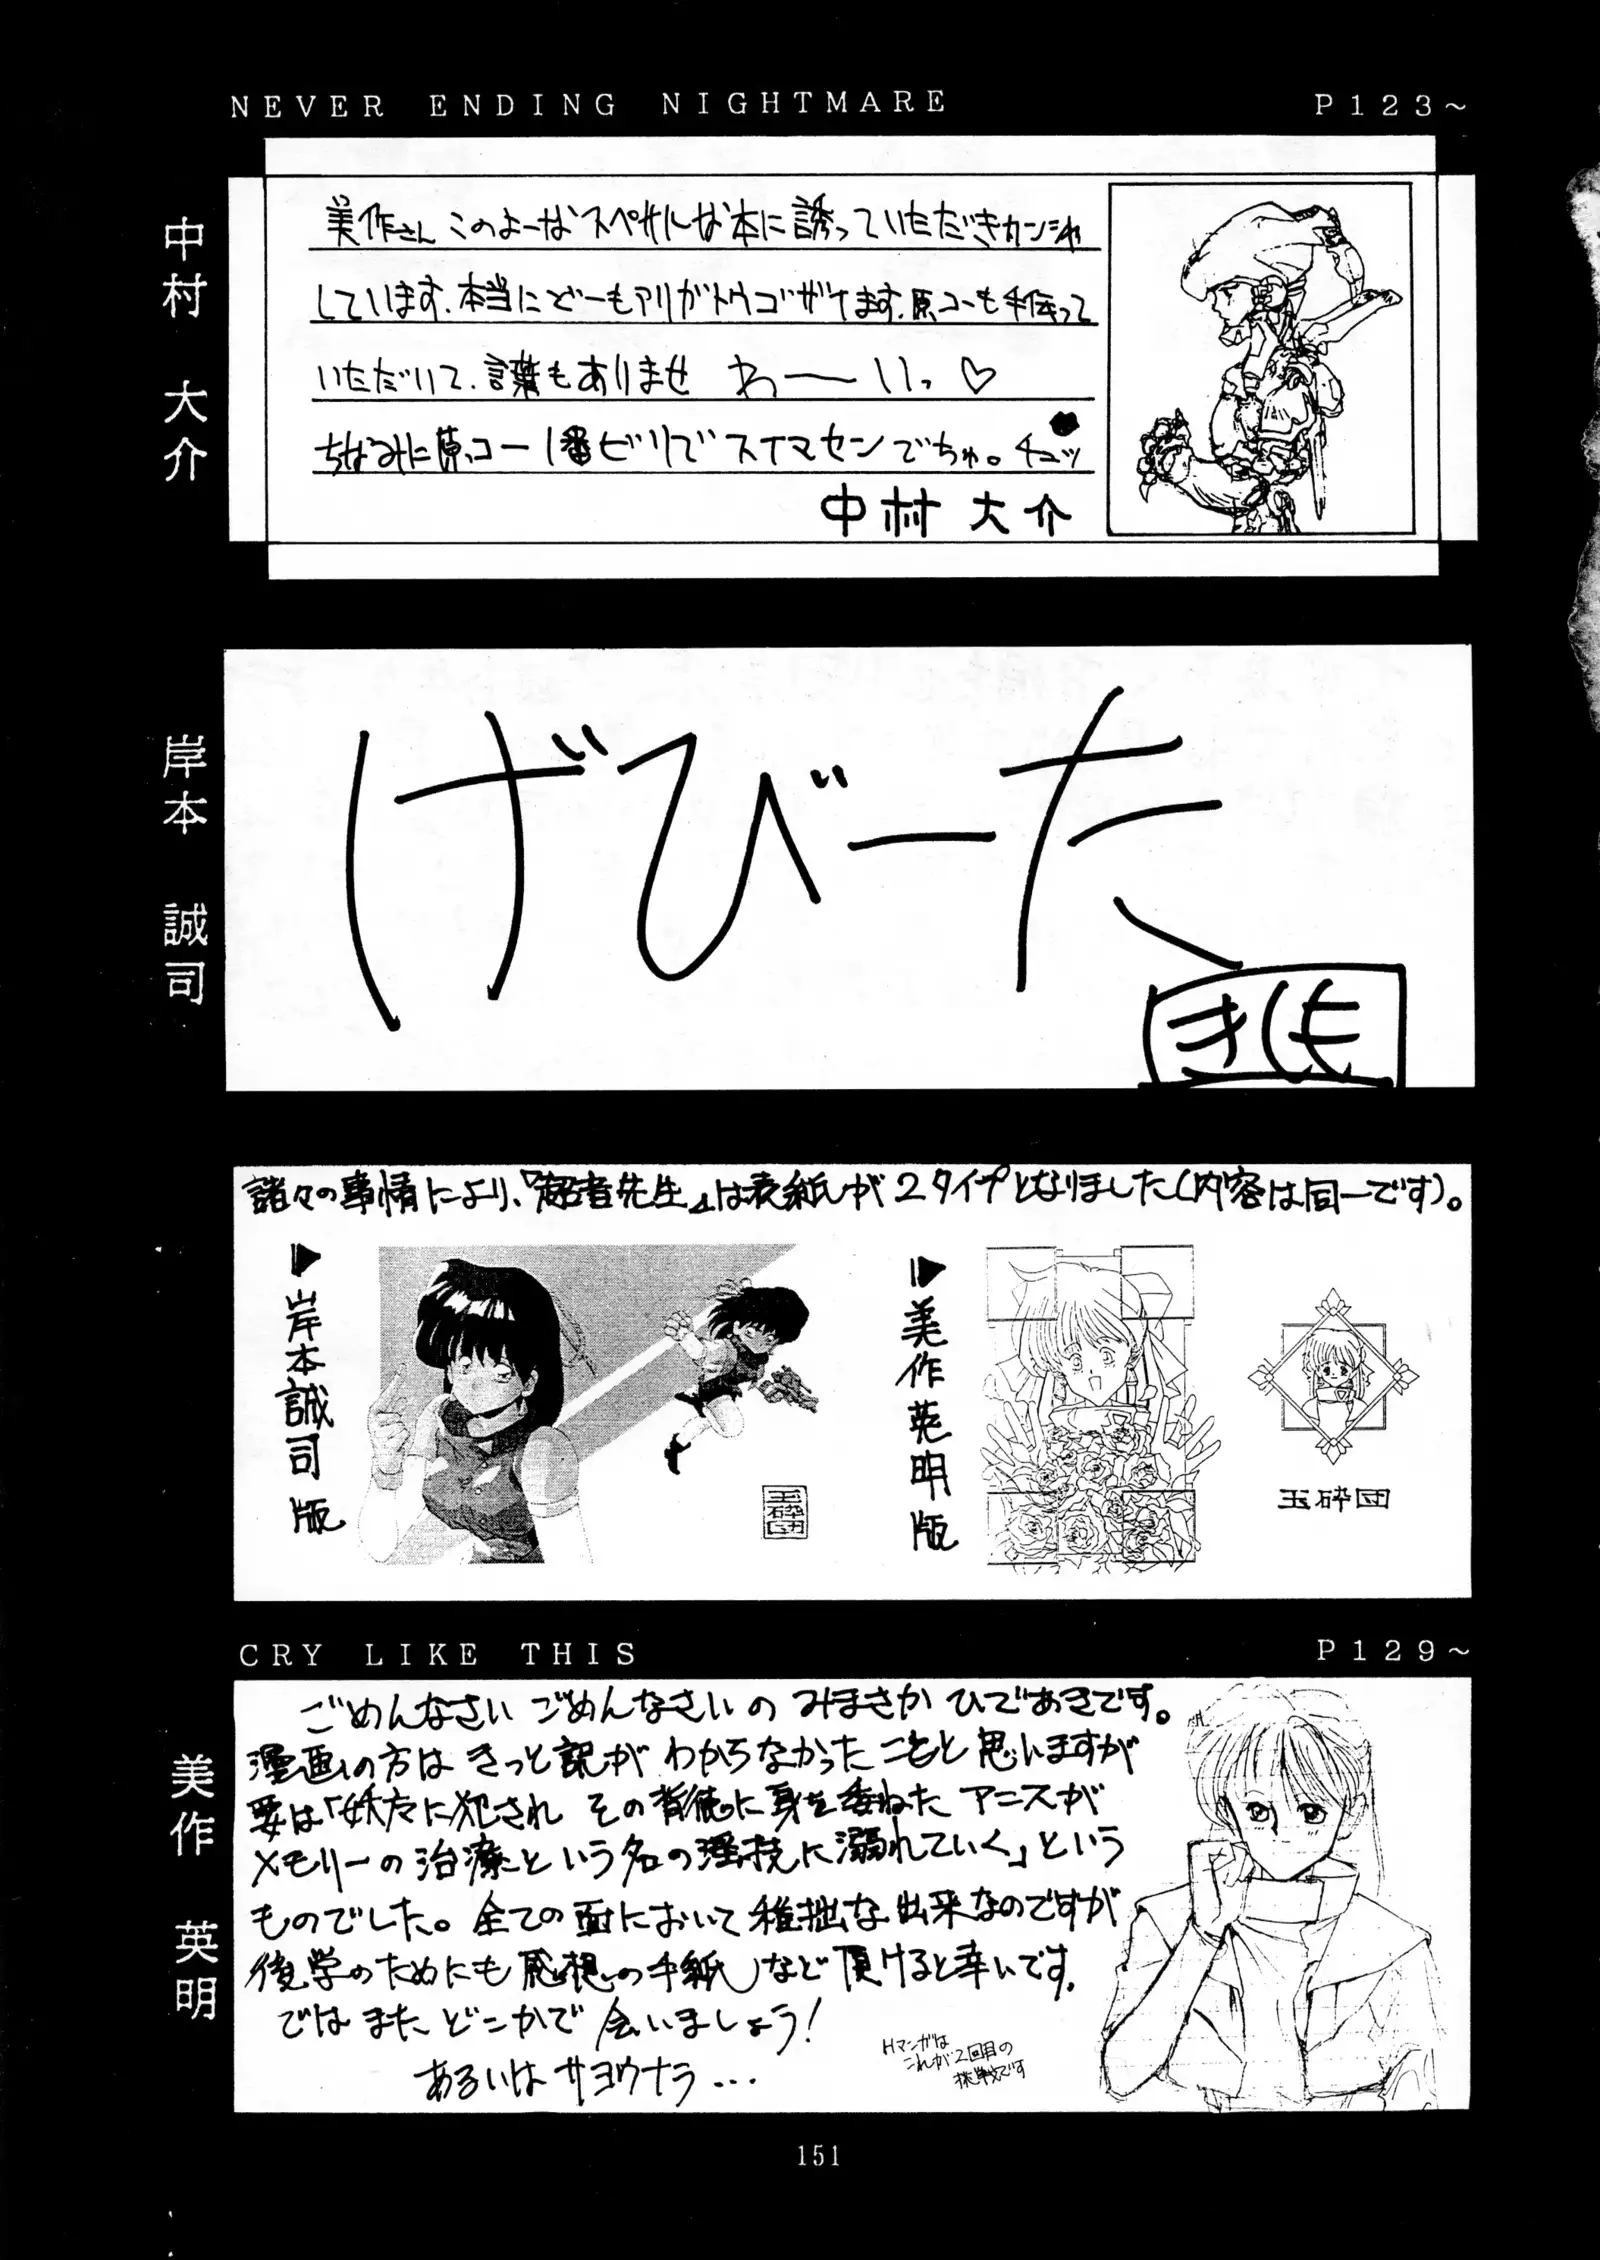 NEVER ENDING NIGHTMARE P123～
中村 大介
美作さん このよーなスペサルな本に誘っていただきカンシャ
しています.本当にどーもアリガトウゴザイます.原コーも手伝って
いただいて.言葉もありませ わーーいっ♡
ちなみに原コー1番ビリでスイマセンでちゅ。チュッ
中村 大介
岸本 誠司
げびーた
きしも
諸々の事情により、『超音先生』は表紙が2タイプとなりました(内容は同一です)。
▶岸本誠司版
玉砕団
▶美作英明版
玉砕団
CRY LIKE THIS P129～
美作 英明
ごめんなさい ごめんなさいの みまさか ひであきです。
漫画の方は きっと訳が わからなかったことと思いますが
要は「妖力に犯され その背徳に身を委ねた アニスが
メモリーの治療という名の淫技に溺れていく」という
ものでした。全ての面において稚拙な出来なのですが
後学のためにも 感想の手紙など頂けると幸いです.
ではまた どこかで 会いましょう!
あるいは サヨウナラ...
Hマンガは
これが2回目の
挑戦です
151